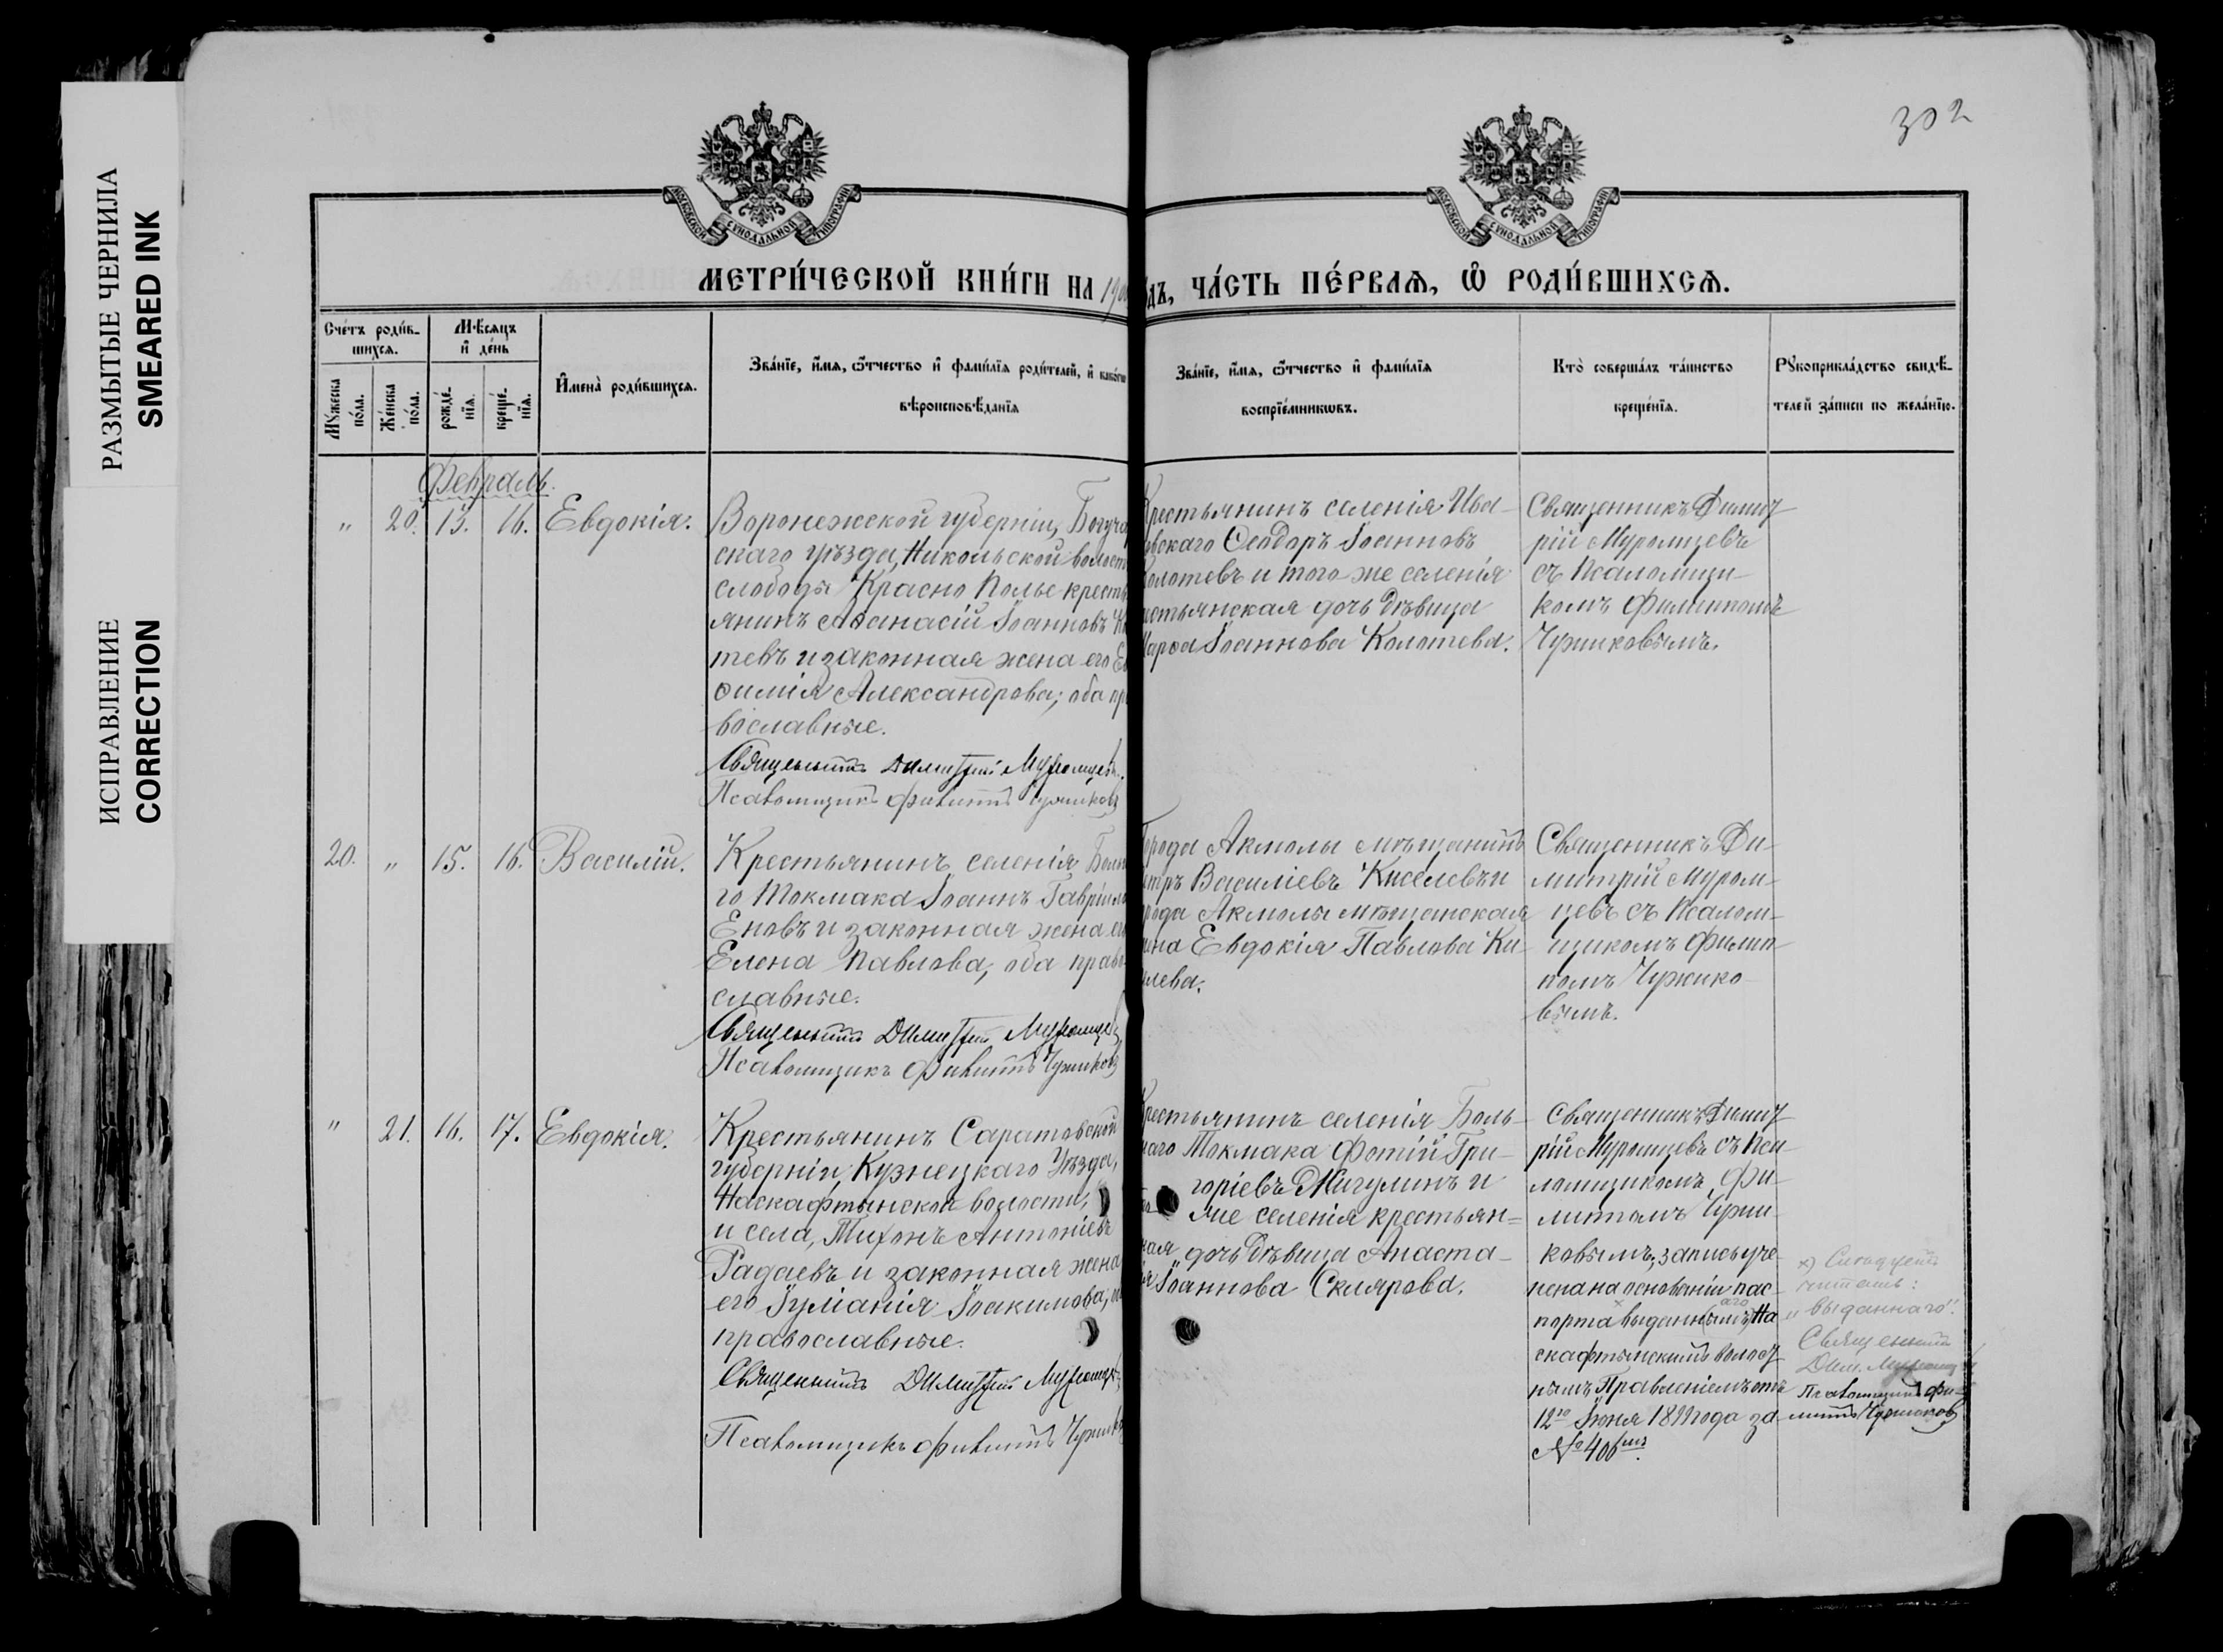 РАЗМЫТЫЕ ЧЕРНИЛА
SMEARED INK
ИСПРАВЛЕНИЕ
CORRECTION
302
МОСКОВСКОЙ СУНОДАЛЬНОЙ ТИПОГРАФІИ
МОСКОВСКОЙ СУНОДАЛЬНОЙ ТИПОГРАФІИ
МЕТРИ́ЧЕСКОЙ КНИ́ГИ НА 190
дъ, ЧА́СТЬ ПЕ́РВАѦ, Ѽ РОДИ́ВШИХСѦ.
Сче́тъ роди́в-
шихся.
Мѣ́сяцъ
и҆ де́нь
Мꙋ́жеска по́ла.
Же́нска по́ла.
рожде́-нїя.
креще́-нїя.
И҆мена̀ роди́вшихся.
Зва́нїе, и҆́мя, ѻ҆́тчество и҆ фами́лїя роди́телей, и҆ како́гѡ
вѣроисповѣ́данїя
Зва́нїе, и҆́мя, ѻ҆́тчество и҆ фами́лїя
воспрїе́мникѡвъ.
Кто̀ соверша́лъ та́инство
креще́нїя.
Рꙋкоприкла́дство свидѣ́-
телей за́писи по жела́нїю.
Февраль.
" 20. 13. 16. Евдокія.
Воронежской губерніи, Богуча
скаго уѣзда, Никольской волост
слободы Красно Полье кресть
янинъ Аѳанасій Іоанновъ Ко
тевъ и законная жена его Ев
ѳимія Александрова; оба пр
вославные.
Священникъ Димитрій Муромцевъ.
Псаломщикъ Филиппъ Чужиковъ
Крестьянинъ селенія Ива-
овскаго Ѳеодоръ Іоанновъ
Колотевъ и того же селенія
естьянская дочь дѣвица
Марѳа Іоаннова Колотева.
Священникъ Димит
рій Муромцевъ
съ Псаломщи-
комъ Филиппомъ
Чужиковымъ.
20. " 15. 16. Василій.
Крестьянинъ селенія Больш
го Токмака Іоаннъ Гавріило
Еновъ и законная жена ег
Елена Павлова; оба право-
славные.
Священникъ Димитрій Муромцевъ
Псаломщикъ Филиппъ Чужиковъ
Города Акмолы мѣщанинъ
етръ Василіевъ Киселевъ и
рода Акмолы мѣщанская
ена Евдокія Павлова Ки-
елева.
Священникъ Ди-
митрій Муром-
цевъ съ Псалом-
щикомъ Филип-
помъ Чужико-
вымъ.
" 21. 16. 17. Евдокія.
Крестьянинъ Саратовской
губерніи, Кузнецкаго уѣзда,
Наскафтынской волости,
и села, Тихонъ Антоніевъ
Радаевъ и законная жена
его Іуліанія Іоакимова; об
православные.
Священникъ Димитрій Муромцевъ
Псаломщикъ Филиппъ Чужиковъ
Крестьянинъ селенія Боль-
шаго Токмака Фотій Гри-
горіевъ Мигулинъ и
же селенія крестьян=
кая дочь дѣвица Анаста-
ія Іоаннова Склярова.
Священникъ Димит
рій Муромцевъ съ Пса-
ломщикомъ Фи-
липпомъ Чужи-
ковымъ; запись учи-
нена на основаніи пас-
порта ×выданн(ымъ)аго На
скафтынскимъ волост
нымъ Правленіемъ отъ
12го Іюня 1899 года за
№ 406мъ.
×) Слѣдуетъ
читать:
"выданнаго".
Священникъ
Дим. Муромцевъ
Псаломщикъ Фи-
липпъ Чужиковъ